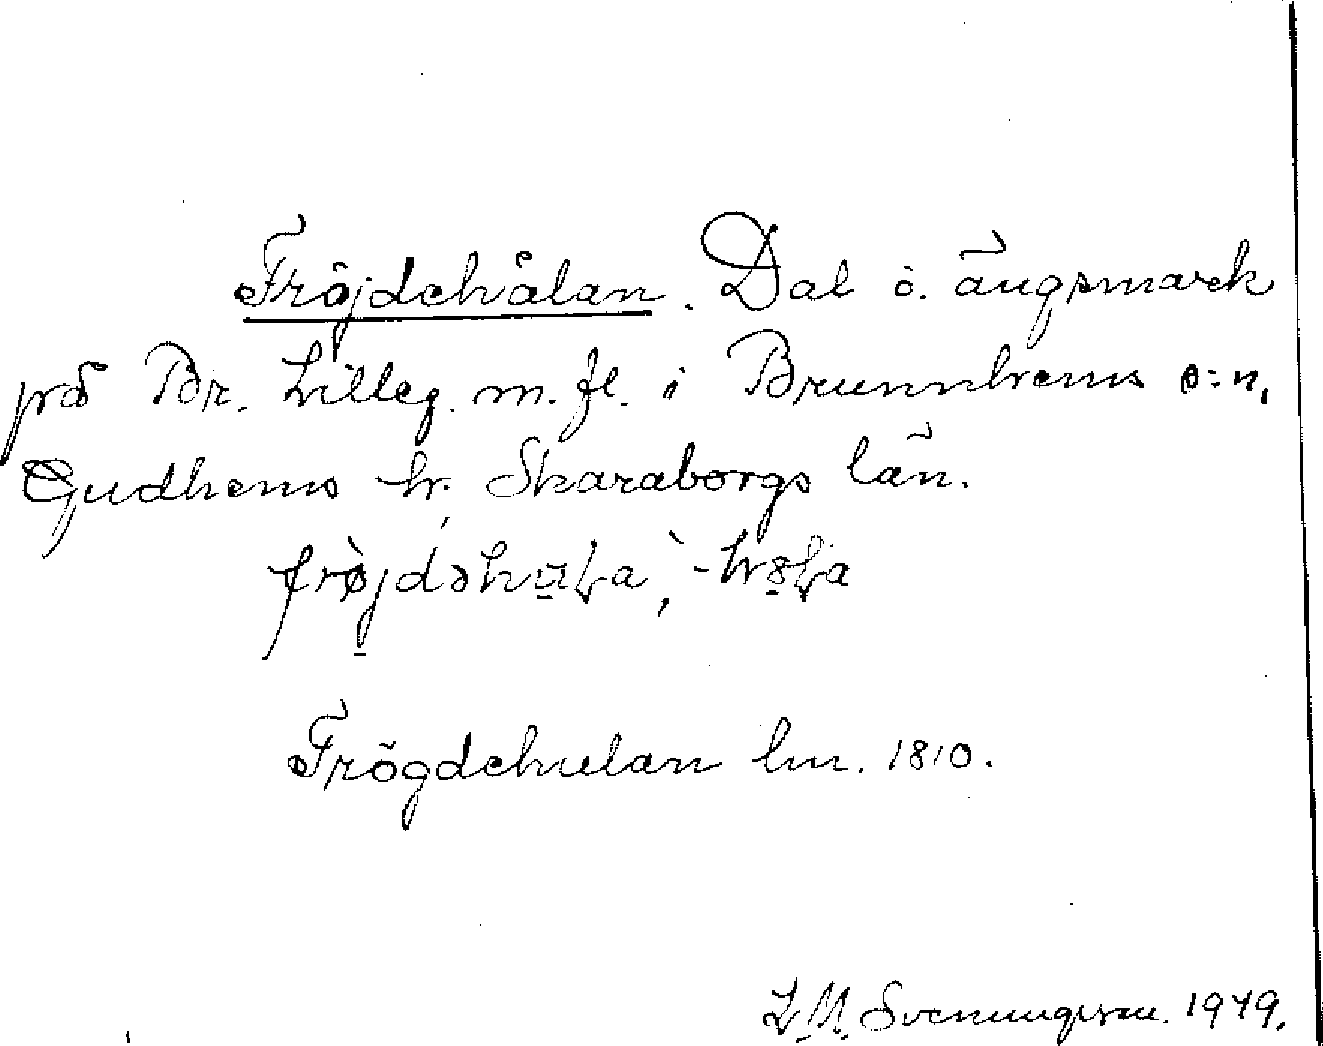 Fröjdehålan. Dal o. ängsmark
på Br. Lilleg. m. fl. i Brunnhems s:n,
Gudhems hr. Skaraborgs län.
Frögdehulan lm. 1810.
Svenungsson. 1949.